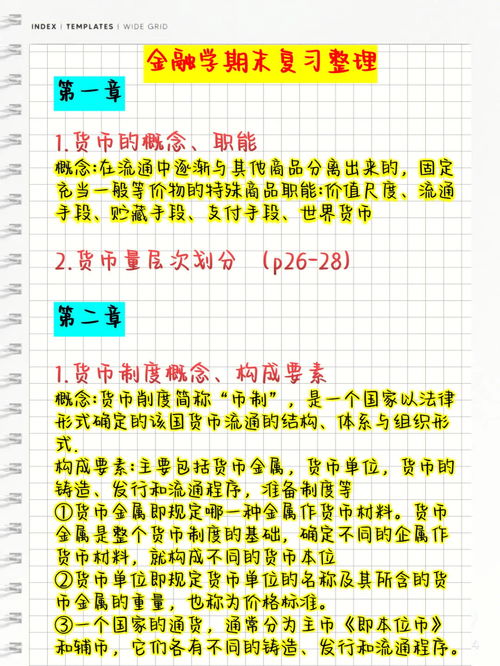 INDEX | TEMPLATES | WIDE GRID
金融学期末复习整理
第一章
1.货币的概念、职能
概念:在流通中逐渐与其他商品分离出来的，固定
充当一般等价物的特殊商品职能:价值尺度、流通
手段、贮藏手段、支付手段、世界货币
2.货币量层次划分 （p26-28)
第二章
1.货币制度概念、构成要素
概念:货币削度简称“币制”，是一个国家以法律
形式确定的该国货币流通的结构、体系与组织形
式.
构成要素:主要包括货币金属，货币单位，货币的
铸造、发行和流通程序，准备制度等
①货币金属即规定哪一种金属作货币材料。货币
金属是整个货币制度的基础，确定不同的企属作
货币材料，就构成不同的货币本位
②货币单位即规定货币单位的名称及其所含的货
币金属的重量，也称为价格标准。
③一个国家的通货，通常分为主币《即本位币》
和辅币，它们各有不同的铸造、发行和流通程序。